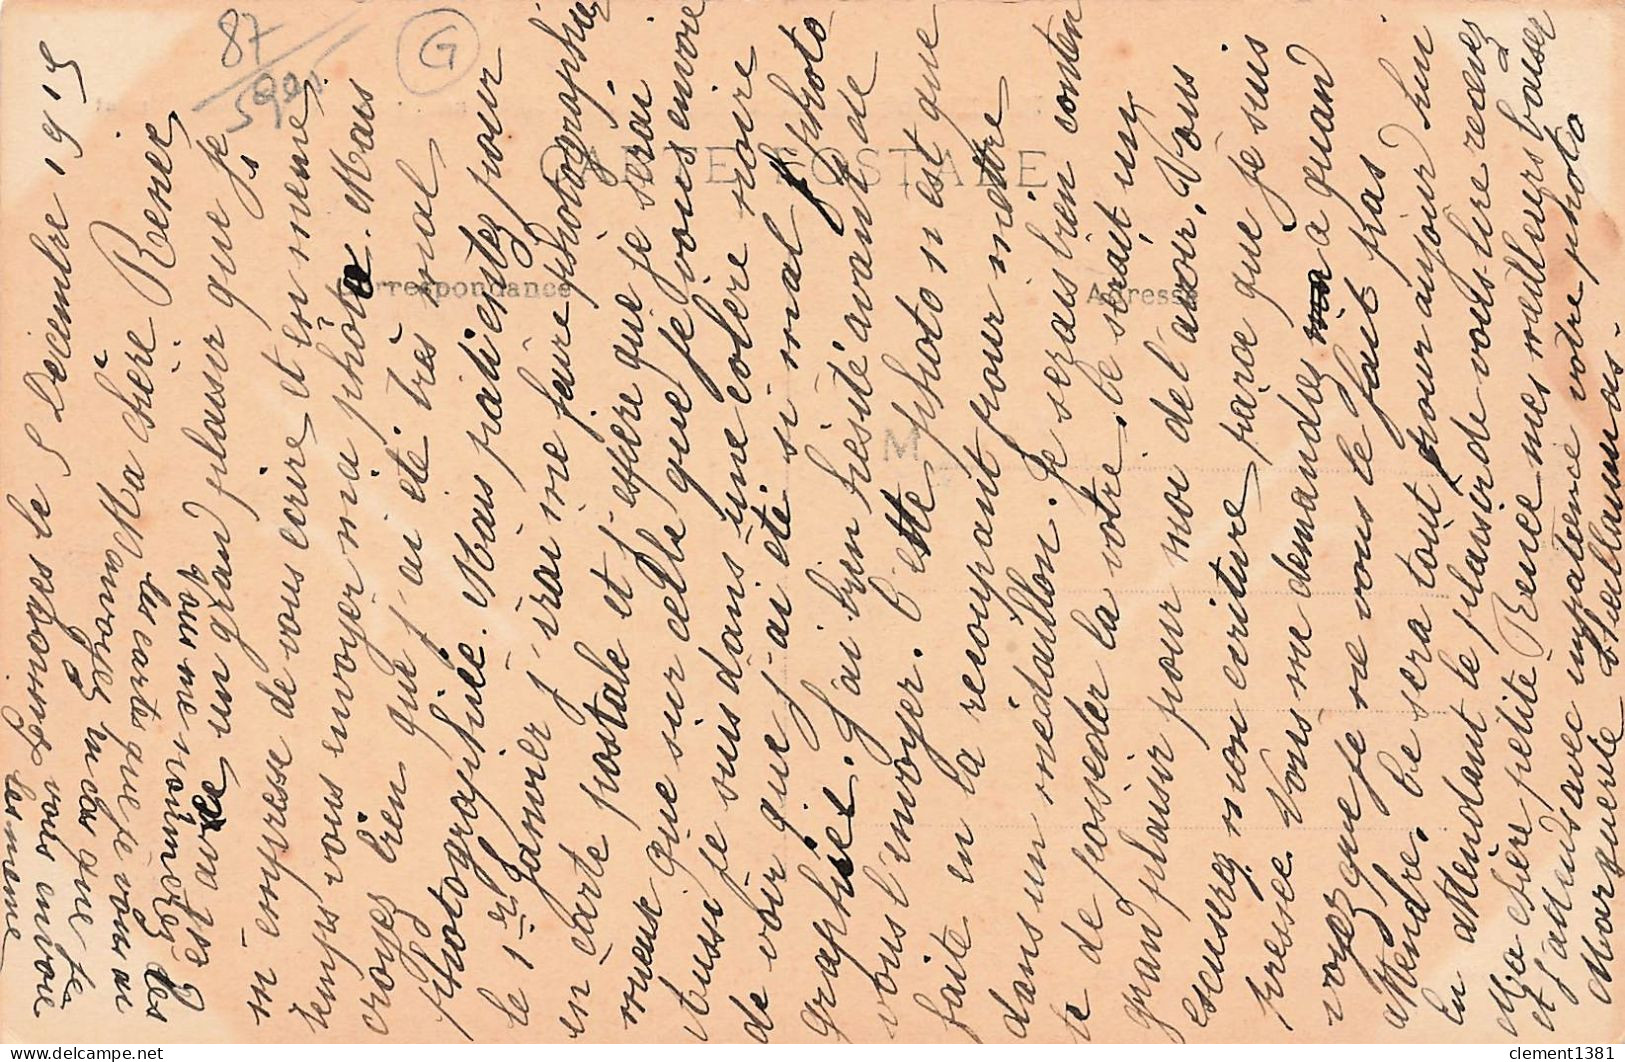 5 Decembre 1915
Ma chère Renée
C'est avec un grand plaisir que je
m'empresse de vous ecrire et en meme
temps vous envoyer ma photo. Mais
croyez bien que j'ai été très mal
photographiée. Mais patientez pour
le 1er Janvier j'irai me faire photographier
en carte postale et j'espere que je serai
mieux que sur celle que je vous envoie
Aussi je suis dans une colere noire
de voir que j'ai eté si mal photo
graphiée. J'ai bien hesité avant de
vous l'envoyer. Cette photo n'est que
faite en la recoupant pour mettre
dans un medaillon. Je serais bien conten
te de posseder la votre. Ce serait un
grand plaisir pour moi de l'avoir. Vous
escuserez mon ecriture parce que je suis
pressée. Vous me demandez a quan
voyez que je ne vous le fait pas
attendre. Ce sera tout pour aujour hui
En attendant le plaisir de vous lire recevez
Ma chere petite Renée mes meilleurs baiser
et J'attends avec impatience votre photo
Marguerite
Vous me
les cartes que je vous ai
Envoyez m'en que je
le
vous envoie
les meme
CARTE POSTALE
Correspondance
Adresse
M
87
G
clement1381